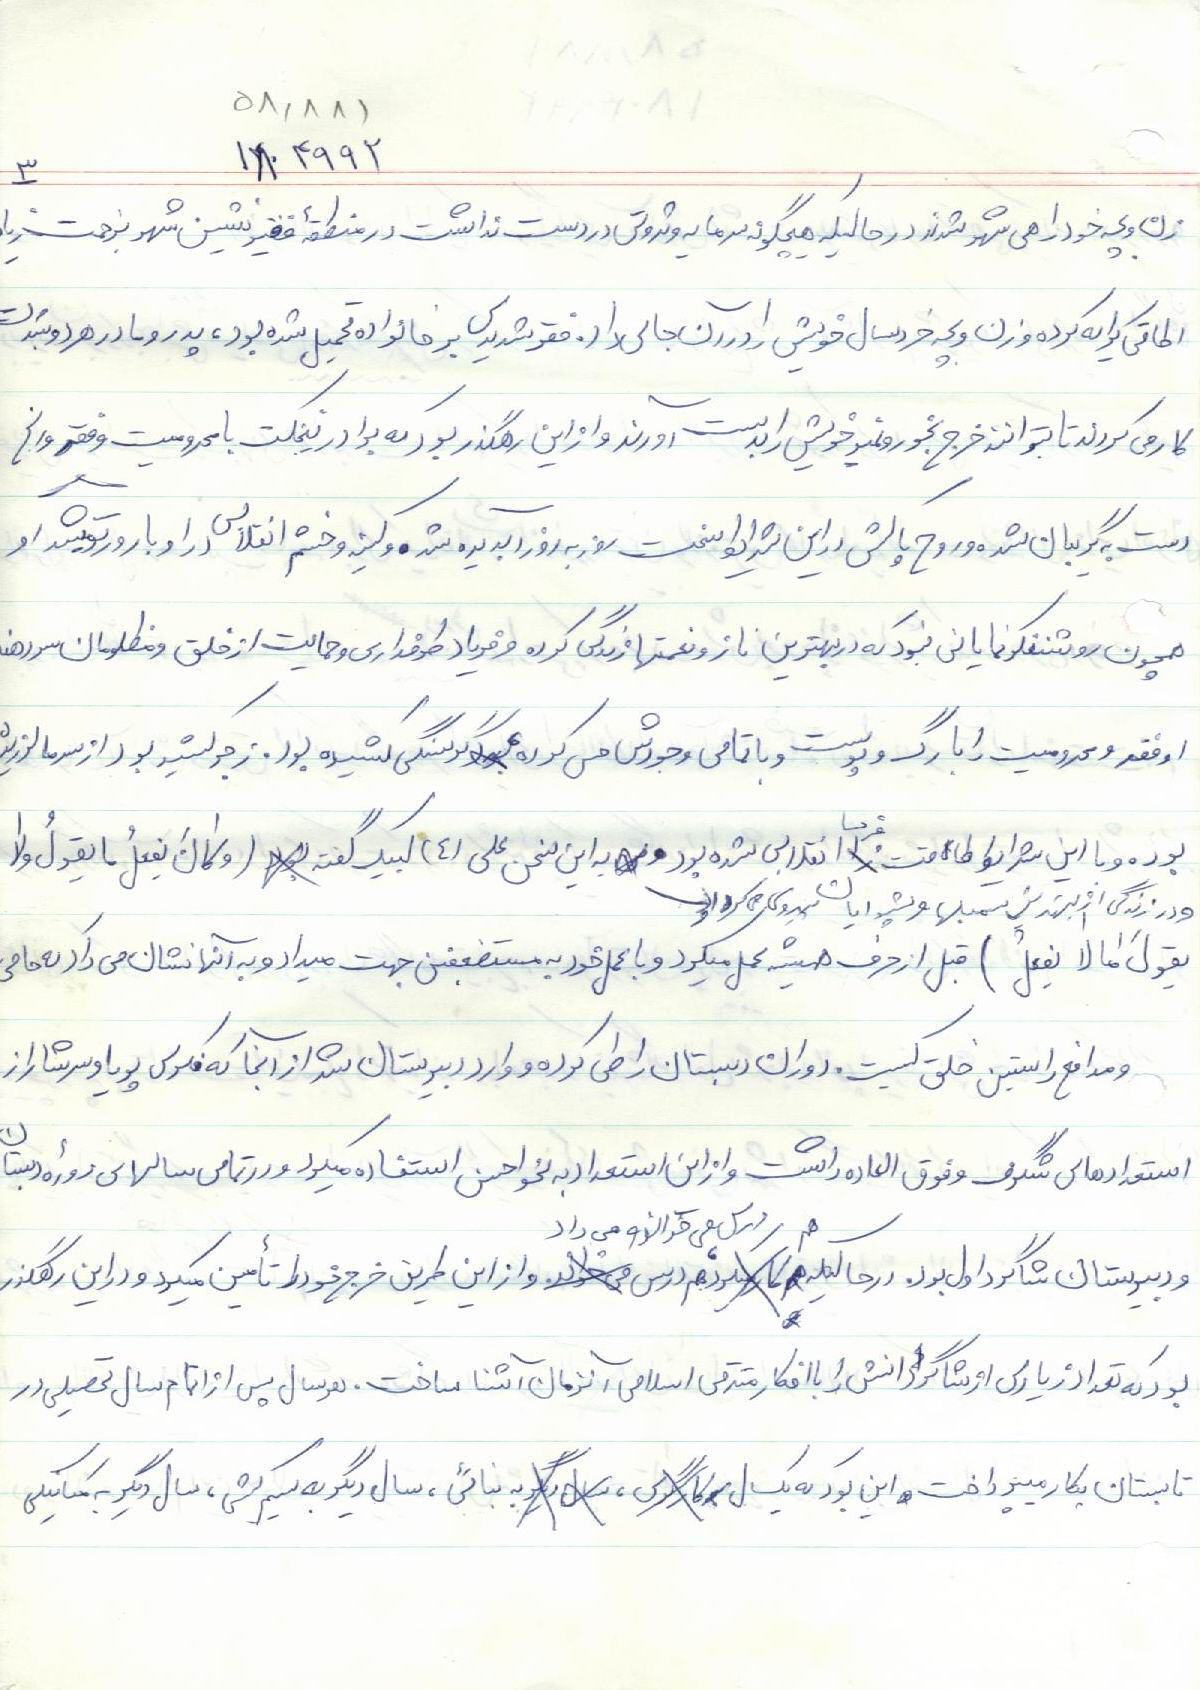 ۵۸٫۸۸۱
۴۹۹۲
۳
زن و بچه خود راهی شهر شدند در حالیکه هیچگونه سرمایه و ثروتی در دست نداشت در منطقهٔ فقیر نشین شهر بزحمت زیاد
اطاقی کرایه کرده و زن و بچه خردسال خویش را در آن جای داد. فقر شدیدی بر خانواده تحمیل شده بود، پدر و مادر هر دو بشدت
کار می کردند تا بتوانند خرج بخور و نمیر خویش را بدست آورند و از این رهگذر بود که برادر نیکبخت با محرومیت و فقر و رنج
دست به گریبان شده و روح پاکش در این شرایط سخت روز به روز آبدیده شده و کینه و خشم انقلابی در او بارورتر میشد او
همچون روشنفکرنمایانی نبود که در بهترین ناز و نعمتها زندگی کرده و فریاد طرفداری و حمایت از خلق و مظلومان سر دهند
او فقر و محرومیت را با رگ و پوست و با تمامی وجودش حس کرده گرسنگی کشیده بود. زجر کشیده بود از سرما لرزیده
بوده و با این شرایط انقلابی شده بود و به این سخن علی (ع) لبیک گفته (و کان یفعلُ ما یقولُ ولا
و در زندگی از بهترین سمبلها و پیشوایان پیروی می کرد
یقولُ مالا یفعلُ) قبل از حرف همیشه عمل میکرد و با عمل خود به مستضعفین جهت میداد و به آنها نشان می داد که حامی
و مدافع راستین خلق کیست. دوران دبستان را طی کرده و وارد دبیرستان شد از آنجا که فکری پویا و سرشار از
استعدادهای شگرف و فوق العاده داشت و از این استعداد به نحو احسن استفاده میکرد و در تمامی سالهای دورهٔ دبستان
هم درس می خواند و هم می داد
و دبیرستان شاگرد اول بود. در حالیکه هم درس و از این طریق خرج خود را تأمین میکرد و در این رهگذر
بود که تعداد زیادی از شاگردانش را با افکار مترقی اسلامی آنزمان آشنا ساخت. هر سال پس از اتمام سال تحصیلی در
تابستان بکار میپرداخت این بود که یکسال کارگری، سال دیگر به بنائی، سال دیگر به سیم کشی، سال دیگر به مکانیکی